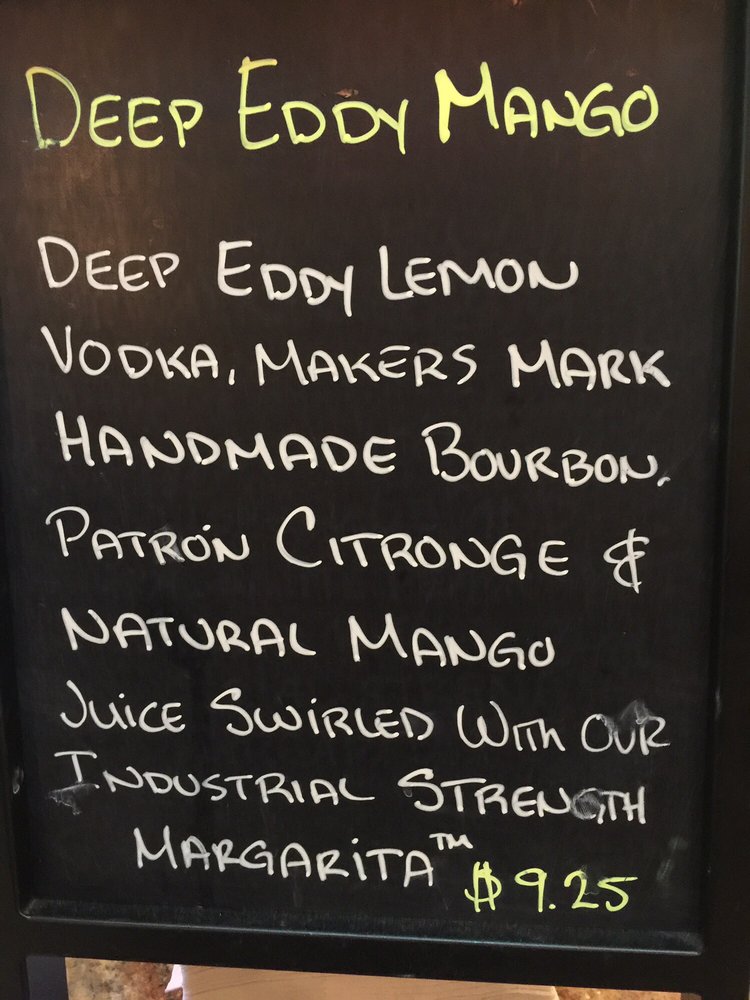 DEEP EDDY MANGO
DEEP EDDY LEMON
VODKA, MAKERS MARK
HANDMADE BOURBON,
PATRÓN CITRONGE &
NATURAL MANGO
JUICE SWIRLED WITH OUR
INDUSTRIAL STRENGTH
MARGARITA™
$9.25